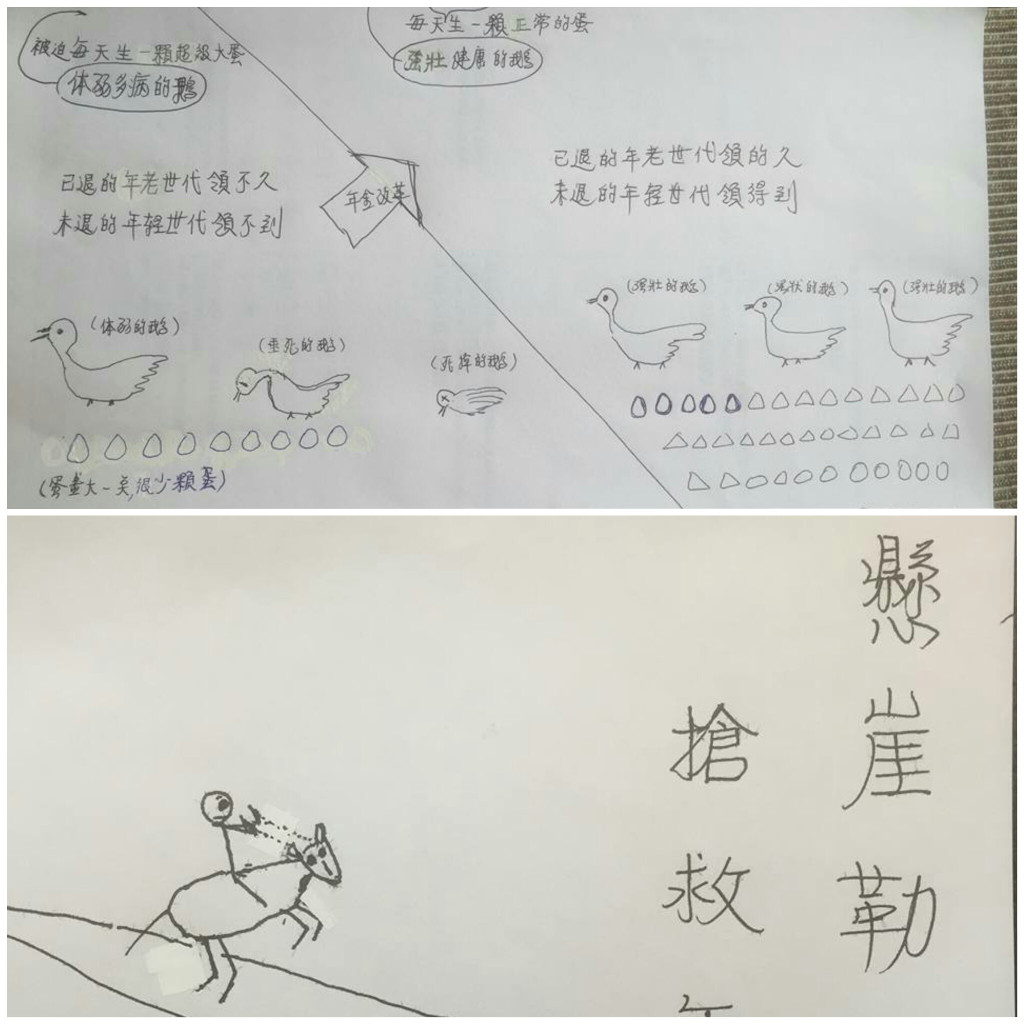 被迫每天生一顆超級大蛋
体弱多病的鵝
每天生一顆正常的蛋
強壯健康的鵝
已退的年老世代領不久
未退的年輕世代領不到
年金改革
已退的年老世代領的久
未退的年轻世代領得到
(体弱的鵝)
(垂死的鵝)
(死掉的鵝)
(强壮的鵝)
(强状的鵝)
(强壮的鵝)
(蛋雖大一矣,很少顆蛋)
懸崖勒
搶救